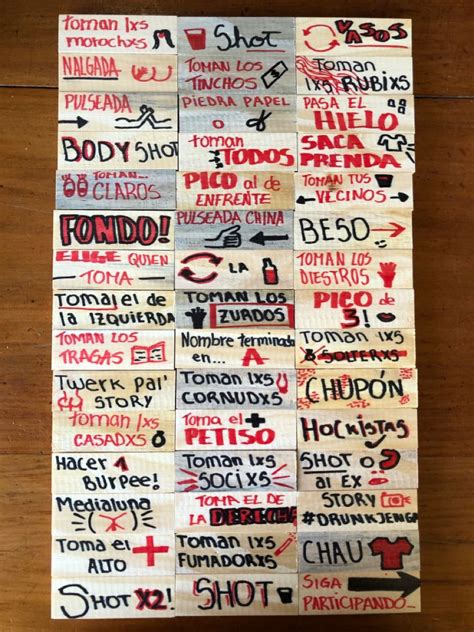 Toman lxs
morochxs
Shot
VASOS
NALGADA
TOMAN LOS
TINCHOS
Toman
lxs RUBIXS
PULSEADA
PIEDRA PAPEL
o
PASA EL
HIELO
BODY SHOT
toman
TODOS
SACA
PRENDA
TOMAN...
CLAROS
PICO al de
ENFRENTE
TOMAN TUS
VECINOS
FONDO!
PULSEADA CHINA
BESO
ELIGE QUIEN
TOMA
LA
TOMAN LOS
DIESTROS
Toma el de
la IZQUIERDA
TOMAN LOS
ZURDOS
PICO de
3!
TOMAN LOS
TRAGAS
Nombre terminado
en... A
Toman lxs
SOLTERXS
Twerk pal'
STORY
Toman lxs
CORNUDXS
CHUPÓN
Toman lxs
CASADXS
Toma el +
PETISO
HOCKISTAS
Hacer 1
BURPEE!
Toman lxs
SOCIXS
SHOT o
al EX
Medialuna
TOMA EL DE
LA DERECHA
STORY
#DRUNKJENGA
Toma el
ALTO
Toman lxs
FUMADORXS
CHAU
SHOT X2!
SHOT
SIGA
PARTICIPANDO...